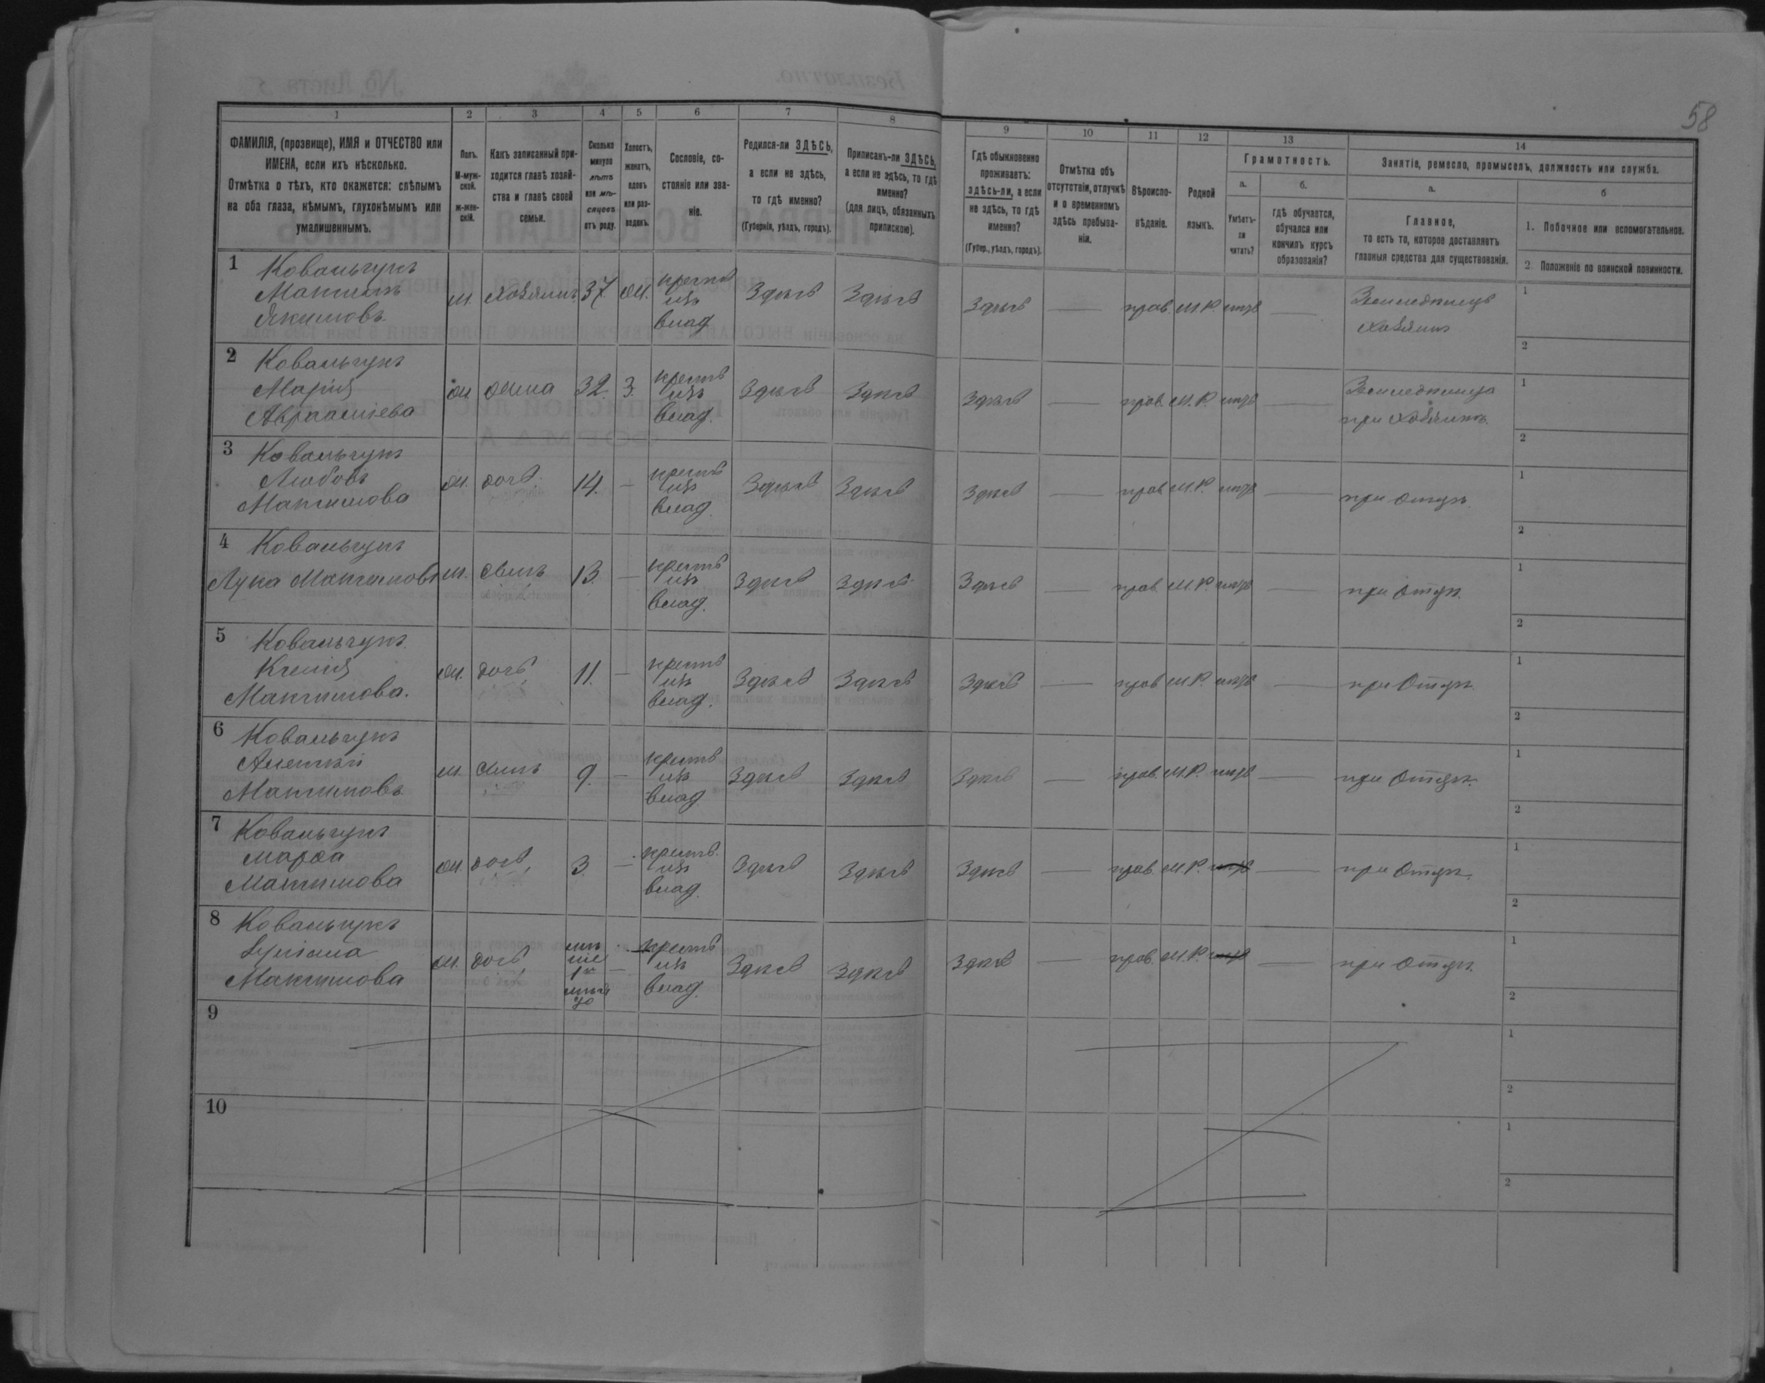 58
1
2
3
4
5
6
7
8
9
10
11
12
13
14
ФАМИЛІЯ, (прозвище), ИМЯ и ОТЧЕСТВО или
ИМЕНА, если ихъ нѣсколько.
Отмѣтка о тѣхъ, кто окажется: слѣпымъ
на оба глаза, нѣмымъ, глухонѣмымъ или
умалишеннымъ.
Полъ.
М-муж-
ской.
Ж-жен-
скій.
Какъ записанный при-
ходится главѣ хозяй-
ства и главѣ своей
семьи.
Сколько
минуло
лѣтъ
или мѣ-
сяцевъ
отъ роду.
Холостъ,
женатъ,
вдовъ
или раз-
веденъ.
Сословіе, со-
стояніе или зва-
ніе.
Родился-ли ЗДѢСЬ,
а если не здѣсь,
то гдѣ именно?
(Губернія, уѣздъ, городъ).
Приписанъ-ли ЗДѢСЬ,
а если не здѣсь, то гдѣ
именно?
(для лицъ, обязанныхъ
припискою).
Гдѣ обыкновенно
проживаетъ:
здѣсь-ли, а если
не здѣсь, то гдѣ
именно?
(Губер., уѣздъ, городъ).
Отмѣтка объ
отсутствіи, отлучкѣ
и о временномъ
здѣсь пребыва-
ніи.
Вѣроиспо-
вѣданіе.
Родной
языкъ.
Грамотность.
а.
Умѣетъ-
ли
читать?
б.
гдѣ обучается,
обучался или
кончилъ курсъ
образованія?
Занятіе, ремесло, промыселъ, должность или служба.
а.
Главное,
то есть то, которое доставляетъ
главныя средства для существованія.
б
1. Побочное или вспомогательное.
2. Положеніе по воинской повинности.
1
Ковальчукъ
Максимъ
Якимовъ
м. хозяинъ 37 ж. крестъ изъ влад. Здѣсь Здѣсь Здѣсь — прав. М.Р. нѣтъ — Земледѣлецъ
хозяинъ
1
2
2
Ковальчукъ
Марія
Авраамієва
ж. жена 32. З. крестъ изъ влад. Здѣсь Здѣсь Здѣсь — прав. М.Р. нѣтъ — Земледѣлица
при хозяинѣ
1
2
3
Ковальчукъ
Любовь
Максимова
ж. дочь 14. — крестъ изъ влад. Здѣсь Здѣсь Здѣсь — прав. М.Р. нѣтъ — при отцѣ
1
2
4
Ковальчукъ
Лука Максимовъ
м. сынъ 13 — крестъ изъ влад. Здѣсь Здѣсь Здѣсь — прав. М.Р. нѣтъ — при отцѣ
1
2
5
Ковальчукъ
Максимова.
ж. дочь 11. — крестъ изъ влад. Здѣсь Здѣсь Здѣсь — прав. М.Р. нѣтъ — при отцѣ
1
2
6
Ковальчукъ
Алексѣй
Максимовъ
м. сынъ 9. — крестъ изъ влад. Здѣсь Здѣсь Здѣсь — прав. М.Р. нѣтъ — при отцѣ
1
2
7
Ковальчукъ
Марѳа
Максимова
ж. дочь 3 — крестъ. изъ влад. Здѣсь Здѣсь Здѣсь — прав. М.Р. нѣтъ — при отцѣ
1
2
8
Ковальчукъ
Максимова
ж. дочь — крестъ изъ влад. Здѣсь Здѣсь Здѣсь — прав. М.Р. — при отцѣ
1
2
9
1
2
10
1
2